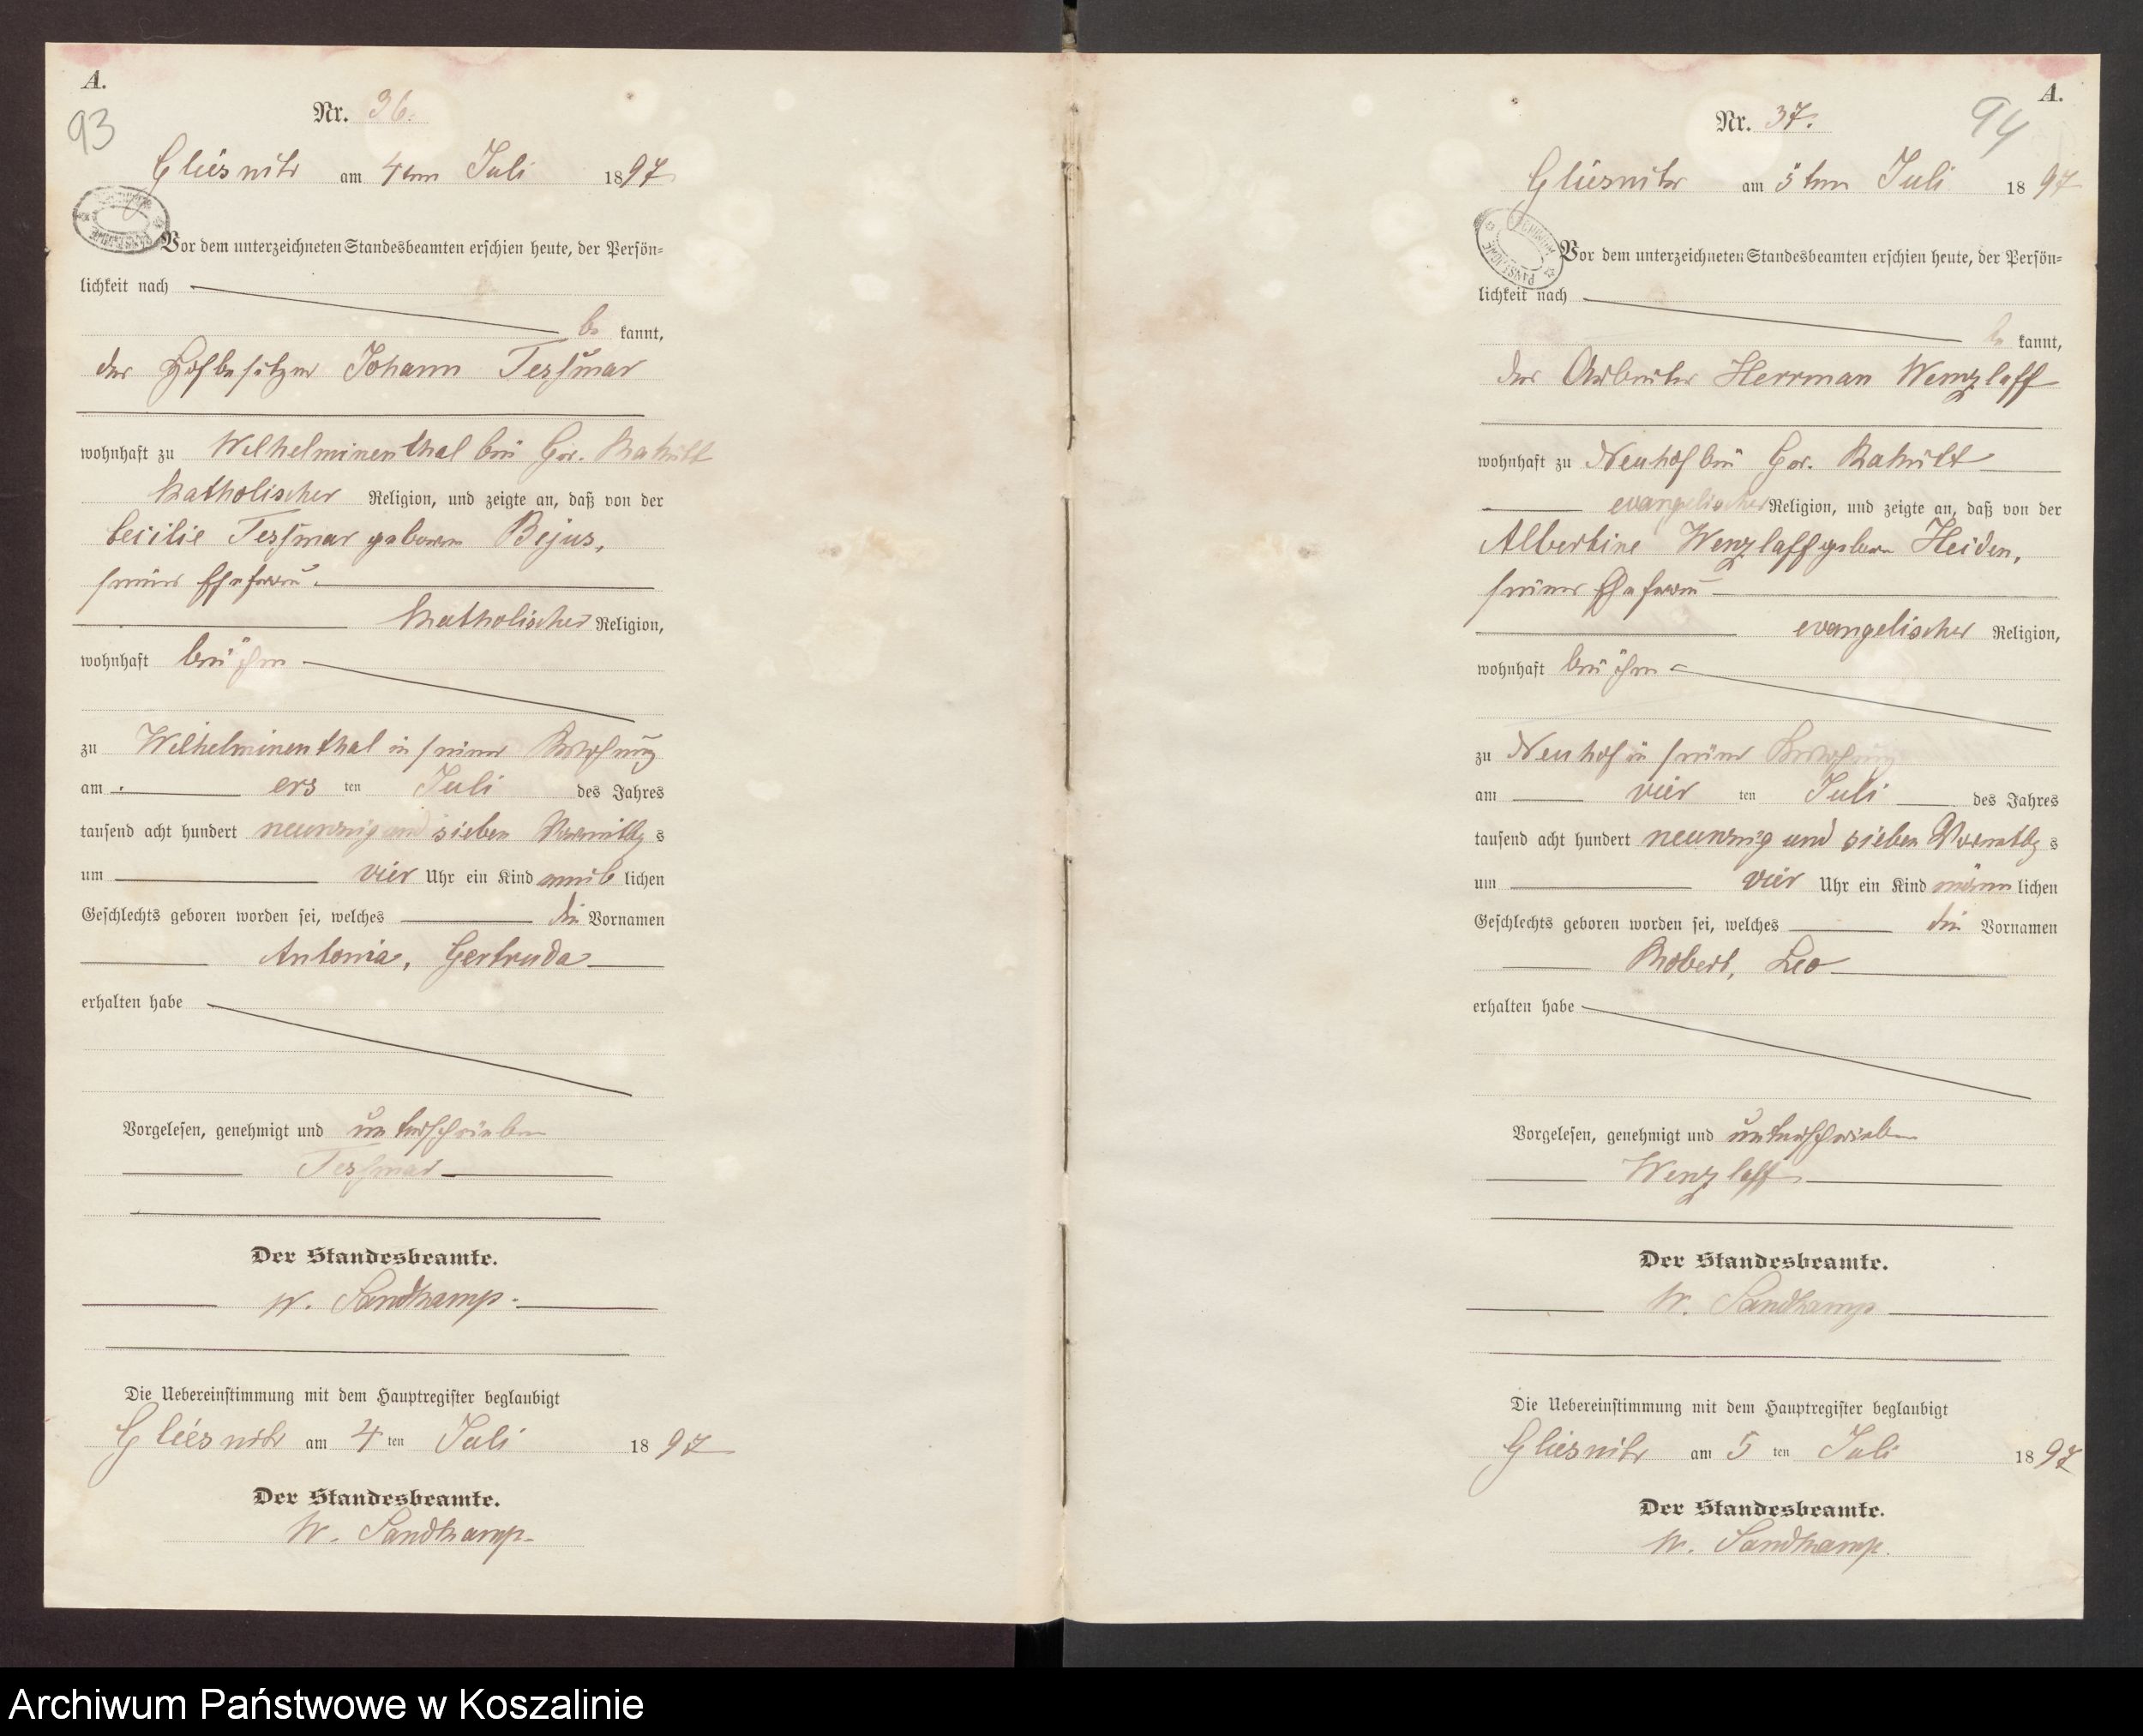 A.
93
Nr. 36.
Gliesnitz am 4ten Juli 1897
Vor dem unterzeichneten Standesbeamten erschien heute, der Persön=
lichkeit nach
be kannt,
der Hofbesitzer Johann Tessmar
wohnhaft zu Wilhelminenthal bei Gr. Rakitt
katholischer Religion, und zeigte an, daß von der
Cecilie Tessmar geboren Bejus,
seiner Ehefrau
katholischer Religion,
wohnhaft bei ihm
zu Wilhelminenthal in seiner Wohnung
am ersten Juli des Jahres
tausend acht hundert neunzig und sieben Vormittags
um vier Uhr ein Kind weiblichen
Geschlechts geboren worden sei, welches die Vornamen
Antonia, Gertruda
erhalten habe
Vorgelesen, genehmigt und unterschrieben
Tessmar
Der Standesbeamte.
W. Sandkamp.
Die Uebereinstimmung mit dem Hauptregister beglaubigt
Gliesnitz am 4ten Juli 1897
Der Standesbeamte.
W. Sandkamp.
A.
94
Nr. 37.
Gliesnitz am 5ten Juli 1897
Vor dem unterzeichneten Standesbeamten erschien heute, der Persön=
lichkeit nach
be kannt,
der Arbeiter Herrman Wenzlaff
wohnhaft zu Neuhof bei Gr. Rakitt
evangelischer Religion, und zeigte an, daß von der
Albertine Wenzlaff geboren Heiden,
seiner Ehefrau
evangelischer Religion,
wohnhaft bei ihm
zu Neuhof in seiner Wohnung
am vierten Juli des Jahres
tausend acht hundert neunzig und sieben Vormittags
um vier Uhr ein Kind männlichen
Geschlechts geboren worden sei, welches die Vornamen
Robert, Leo
erhalten habe
Vorgelesen, genehmigt und unterschrieben
Wenzlaff
Der Standesbeamte.
W. Sandkamp
Die Uebereinstimmung mit dem Hauptregister beglaubigt
Gliesnitz am 5ten Juli 1897
Der Standesbeamte.
W. Sandkamp.
Archiwum Państwowe w Koszalinie